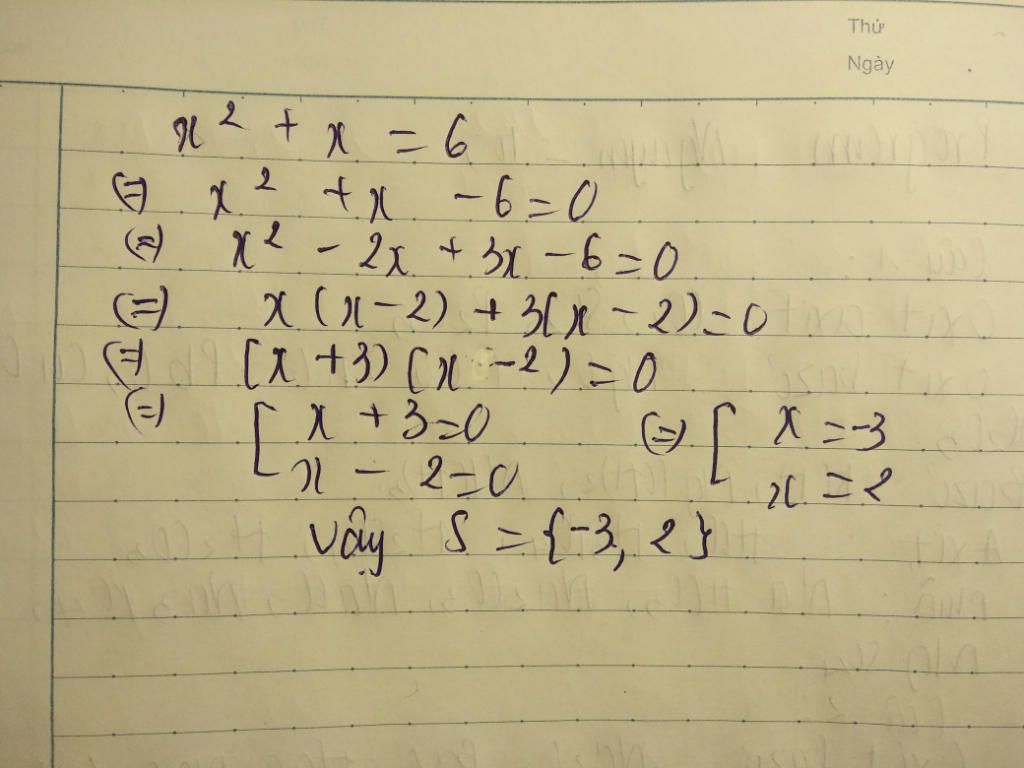 Thứ
Ngày
x² + x = 6
(=) x² + x - 6 = 0
(=) x² - 2x + 3x - 6 = 0
(=) x(x - 2) + 3(x - 2) = 0
(=) (x + 3)(x - 2) = 0
(=) [ x + 3 = 0 (=) [ x = -3
x - 2 = 0 x = 2
Vậy S = {-3, 2}